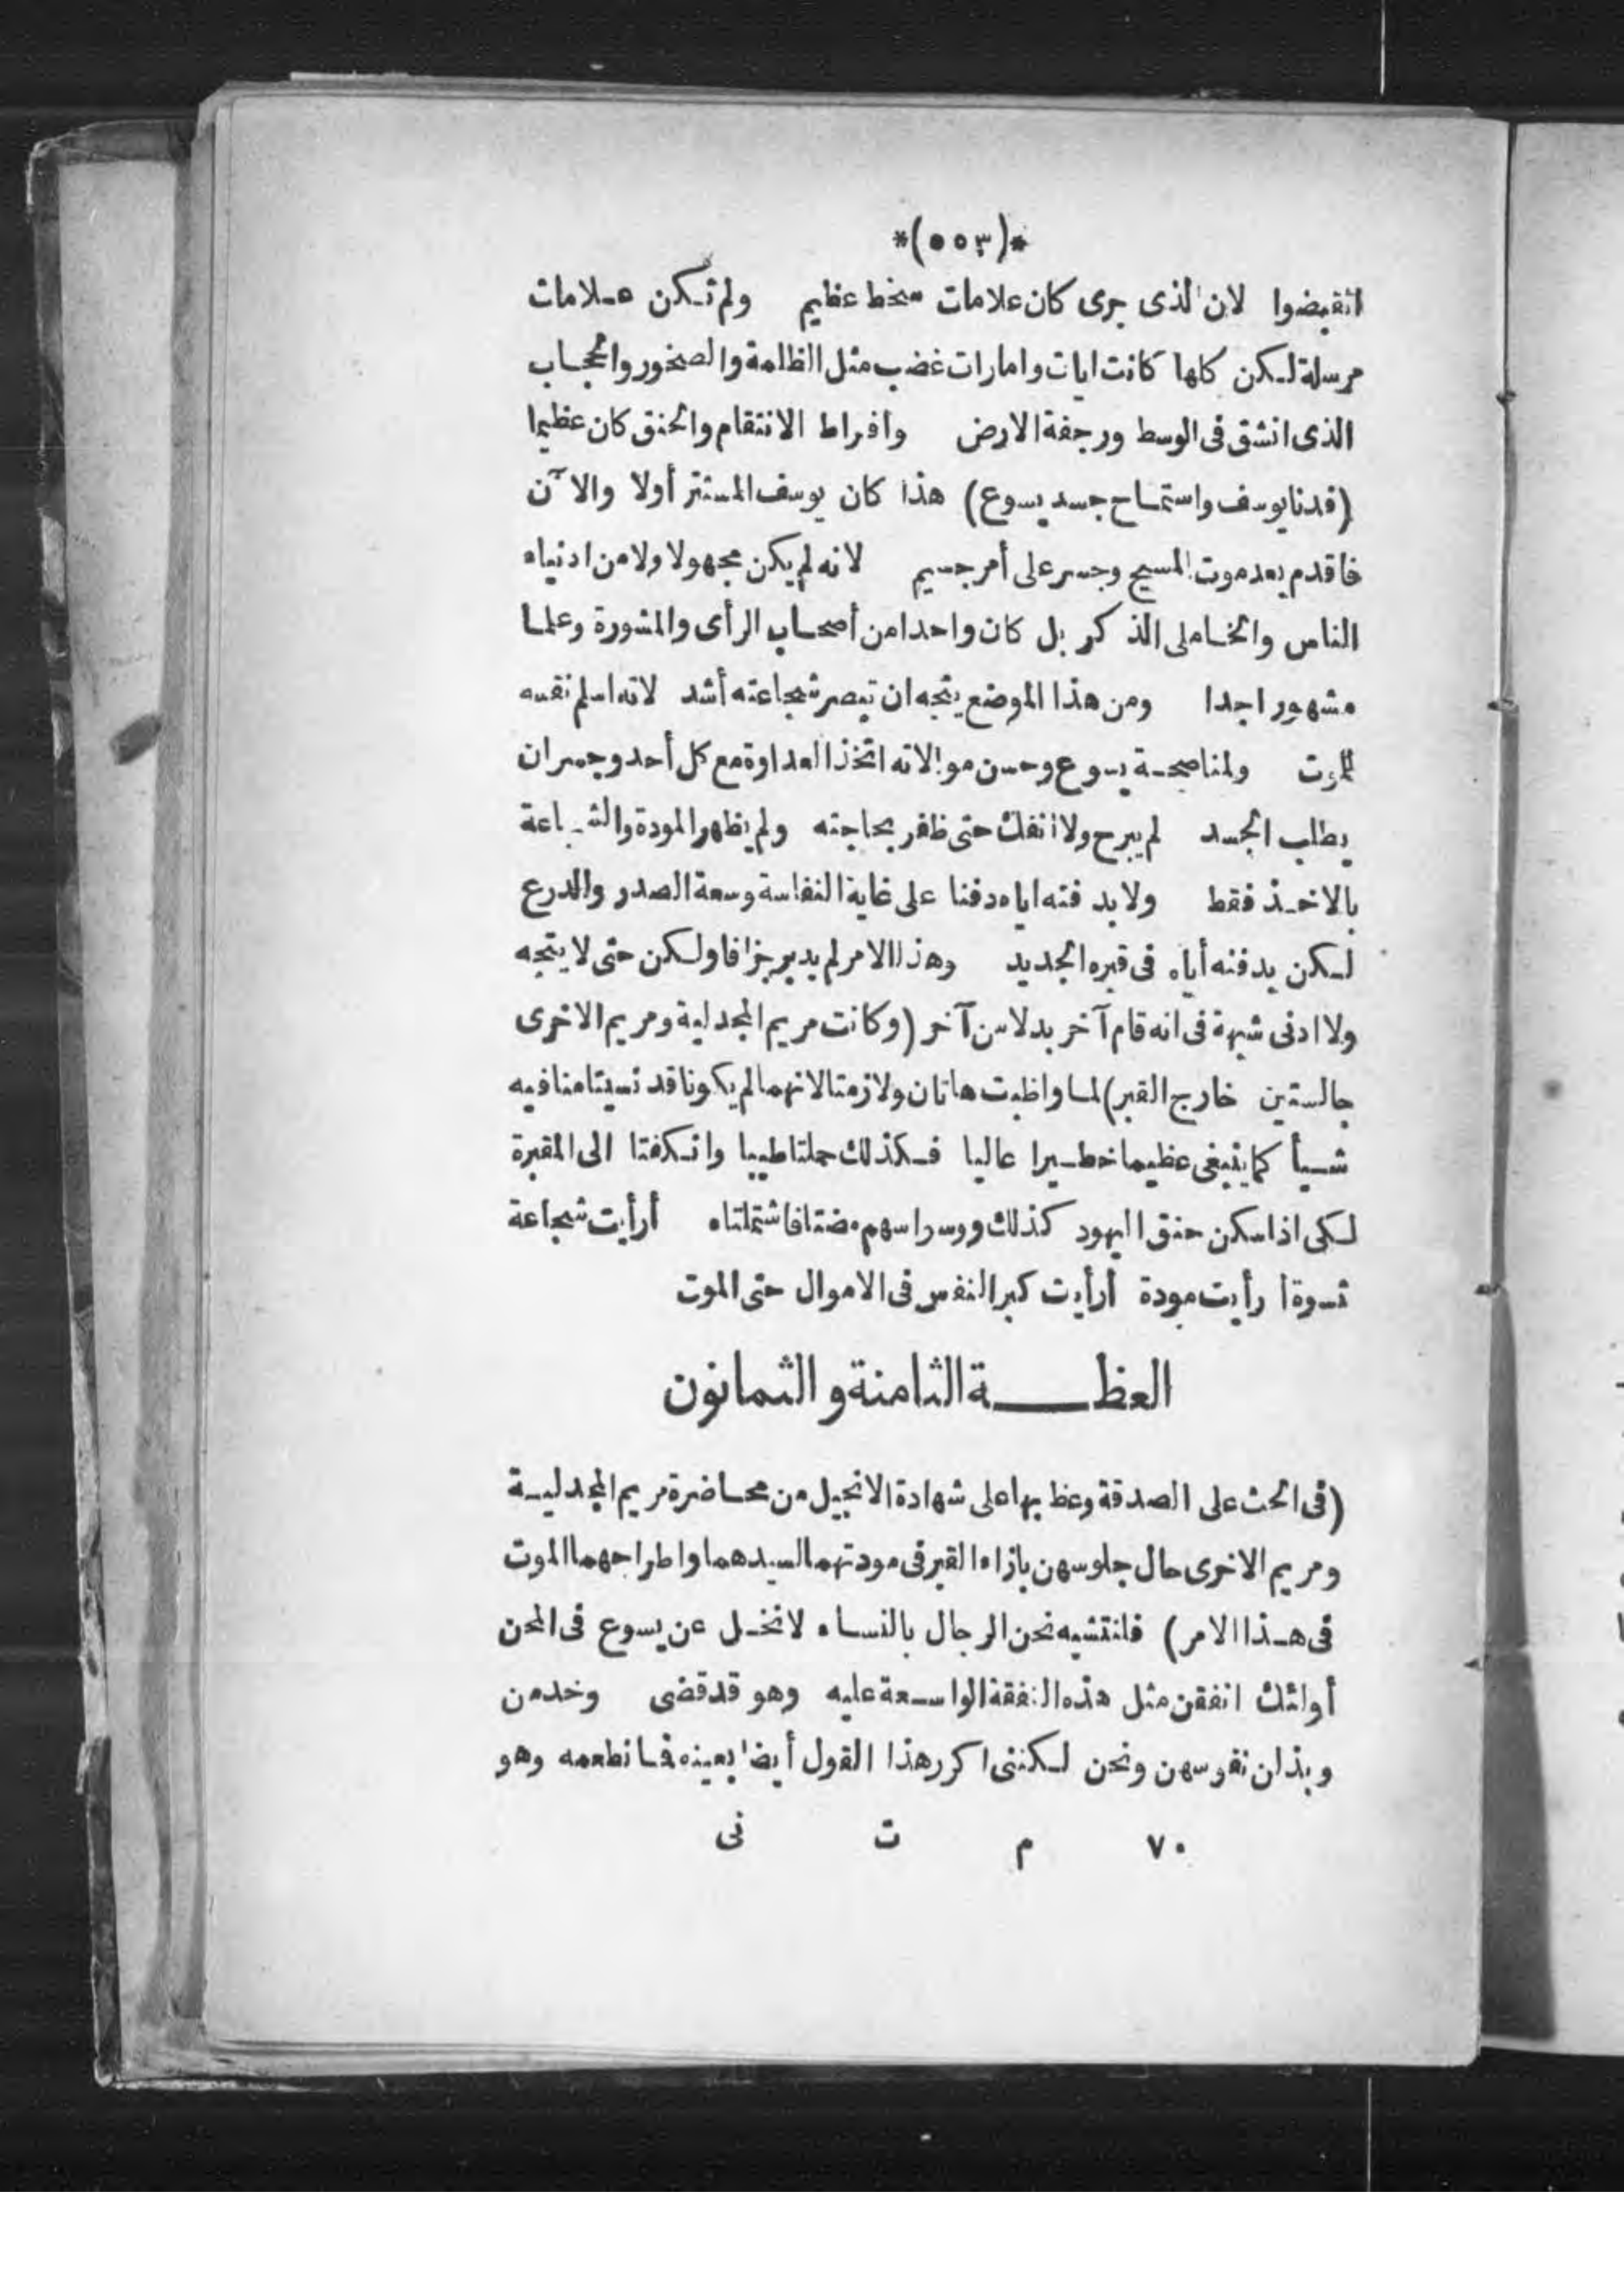 *(٥٥٣)*
انقبضوا لان الذى جرى كان علامات سخط عظيم ولم تكن علامات
مرسلة لكن كلها كانت ايات وامارات غضب مثل الظلمة والصخور والحجاب
الذى انشق فى الوسط ورجفة الارض وافراط الانتقام والحنق كان عظيما
(فدنا يوسف واستماح جسد يسوع) هذا كان يوسف المستتر أولا والآن
فاقدم بعد موت المسيح وجسر على أمر جسيم لانه لم يكن مجهولا ولا من ادنياء
الناس والخاملى الذكر بل كان واحدا من أصحاب الرأى والمشورة وعلما
مشهورا جدا ومن هذا الموضع يتجه ان تبصر شجاعته أشد لانه اسلم نفسه
للموت ولمناصحة يسوع وحسن موالاته اتخذ العداوة مع كل أحد وجسر ان
يطلب الجسد لم يبرح ولا انفك حتى ظفر بحاجته ولم يظهر المودة والشجاعة
بالاخذ فقط ولا بد فنه اياه دفنا على غاية النفاسة وسعة الصدر والدرع
لكن بدفنه أياه فى قبره الجديد وهذا الامر لم يدبر جزافا ولكن حتى لا يتجه
ولا ادنى شبهة فى انه قام آخر بدلا من آخر (وكانت مريم المجدلية ومريم الاخرى
جالستين خارج القبر) لما واظبت هاتان ولازمتا لانهما لم يكونا قد نسيتا منا فيه
شيأ كما ينبغى عظيما خطيرا عاليا فكذلك حملتا طيبا وانكفتا الى المقبرة
لكى اذا سكن حنق اليهود كذلك ووسراسهم مضتا فاشتملتاه أرأيت شجاعة
نسوة أرأيت مودة أرأيت كبر النفس فى الاموال حتى الموت
العظة الثامنة والثمانون
(فى الحث على الصدقة وعظ بها على شهادة الانجيل من محاضرة مريم المجدلية
ومريم الاخرى حال جلوسهن بازاء القبر فى مودتهما لسيدهما واطراحهما الموت
فى هذا الامر) فلنتشبه نحن الرجال بالنساء لا نخل عن يسوع فى المحن
أولئك انفقن مثل هذه النفقة الواسعة عليه وهو قد قضى وخدمن
وبذلن نفوسهن ونحن لكننى اكرر هذا القول أيضا بعينه فما نطعمه وهو
٧٠ م ت نى